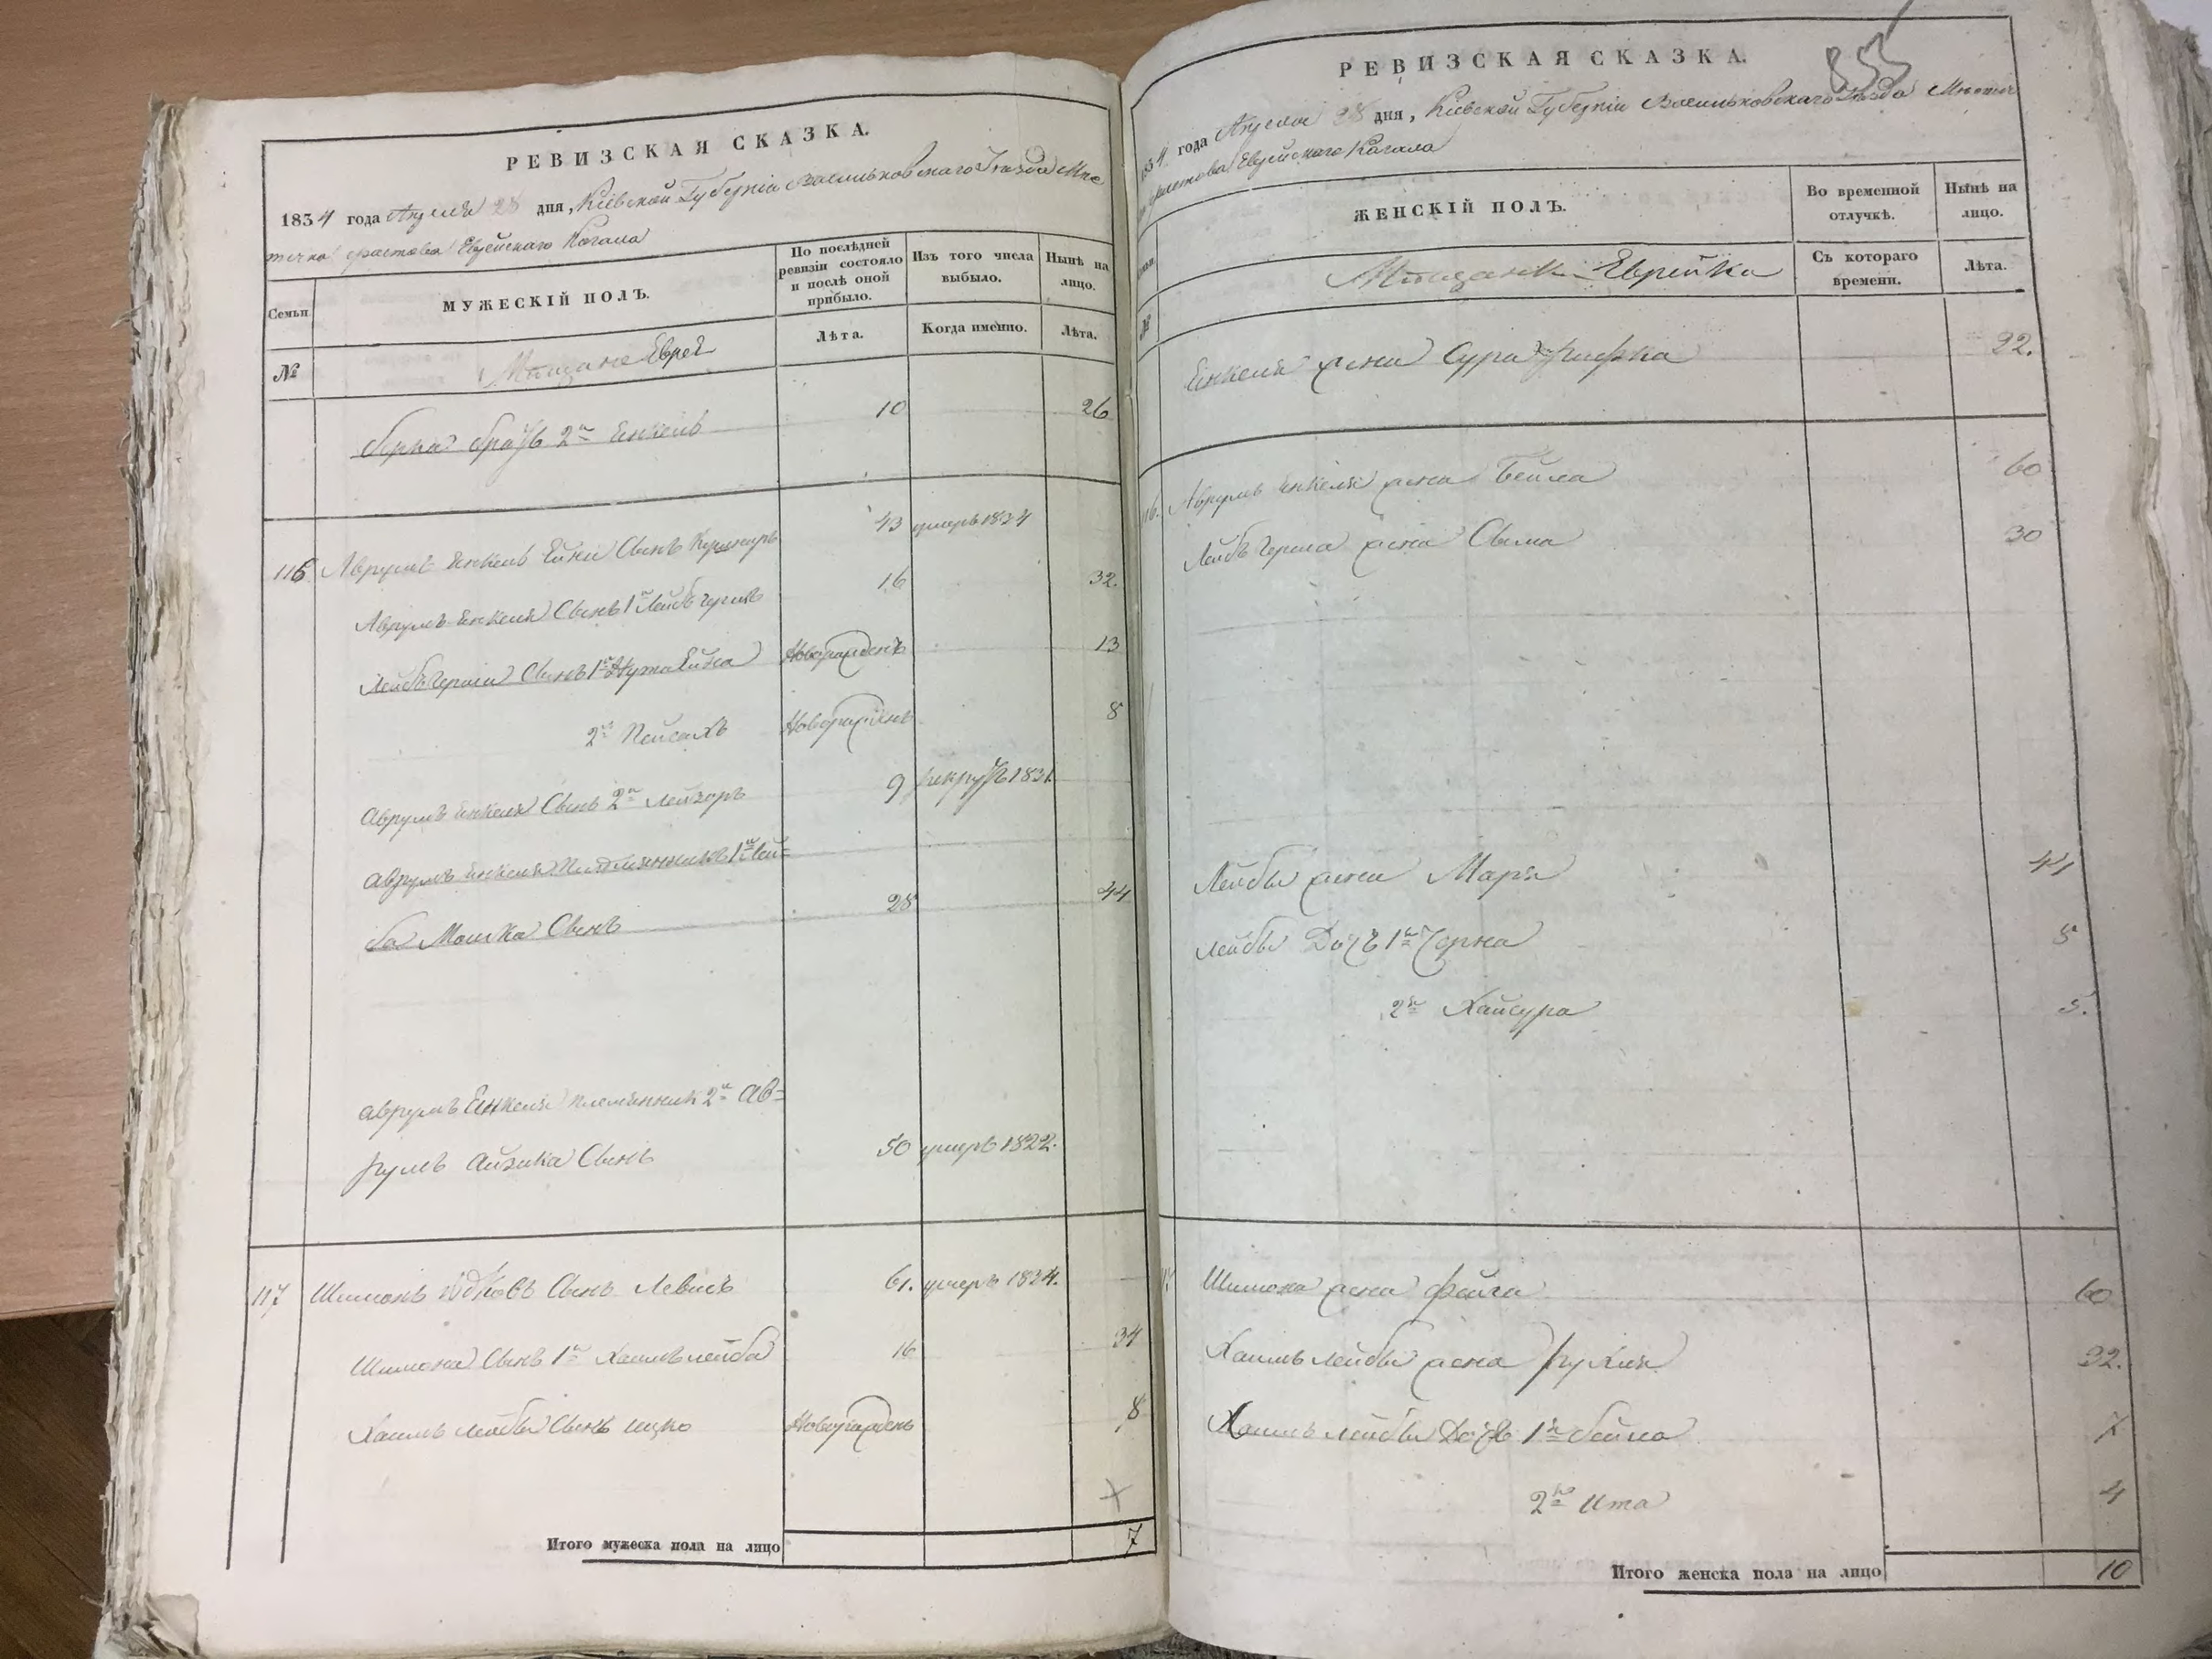 РЕВИЗСКАЯ СКАЗКА.
1834 года Апреля 28 дня, Кіевской Губерніи Васильковскаго Уезда Мѣс
течка Фастова Еврейскаго Кагала
Семьи
МУЖЕСКІЙ ПОЛЪ.
По послѣдней ревизіи состояло и послѣ оной прибыло.
Изъ того числа выбыло.
Нынѣ на лицо.
№
Мѣщане Евреи
Лѣта.
Когда именно.
Лѣта.
Берка братъ 2й Енкель 10 26
116 Аврумъ Енкель Сынъ 43 умеръ 1834
Аврумъ Енкеля Сынъ 1й Лейбъ Гершъ 16 32.
Лейбъ Герша Сынъ 1й Новорожденъ 13
2й Пейсахъ Новорожденъ 8
Аврумъ Енкеля Сынъ 2й Лейзоръ 9 рекрутъ 1831.
Аврумъ Енкеля Племянникъ 1й Лей=
ба Мошка Сынъ 28 44
Аврумъ Енкеля племянникъ 2й Ав=
румъ Айзика Сынъ 50 умеръ 1822.
117 Шимонъ Сынъ 61. умеръ 1834.
Шимона Сынъ 1й Хаимъ Лейба 16 34
Хаимъ Лейбы Сынъ Ицко Новорожденъ 8
Итого мужеска пола на лицо 7
855
РЕВИЗСКАЯ СКАЗКА.
1834 года Апреля 28 дня, Кіевской Губерніи Васильковскаго Уезда Мѣстеч
Фастова Еврейскаго Кагала
ЖЕНСКІЙ ПОЛЪ.
Во временной отлучкѣ.
Нынѣ на лицо.
№
Мѣщанки Еврейки
Съ котораго времени.
Лѣта.
Енкеля жена Сура Рифка 22.
116. Аврумъ Енкеля жена Бейла 60
Лейбъ Герша жена Сима 30
Лейбы жена Марья 41
Лейбы Дочь 1я Черна 8
2я Хайсура 5.
117 Шимона жена Фейга 60
Хаимъ Лейбы жена Рухля 32.
Хаимъ Лейбы Дочь 1я Бейла 7
2я Ита 4
Итого женска пола на лицо 10